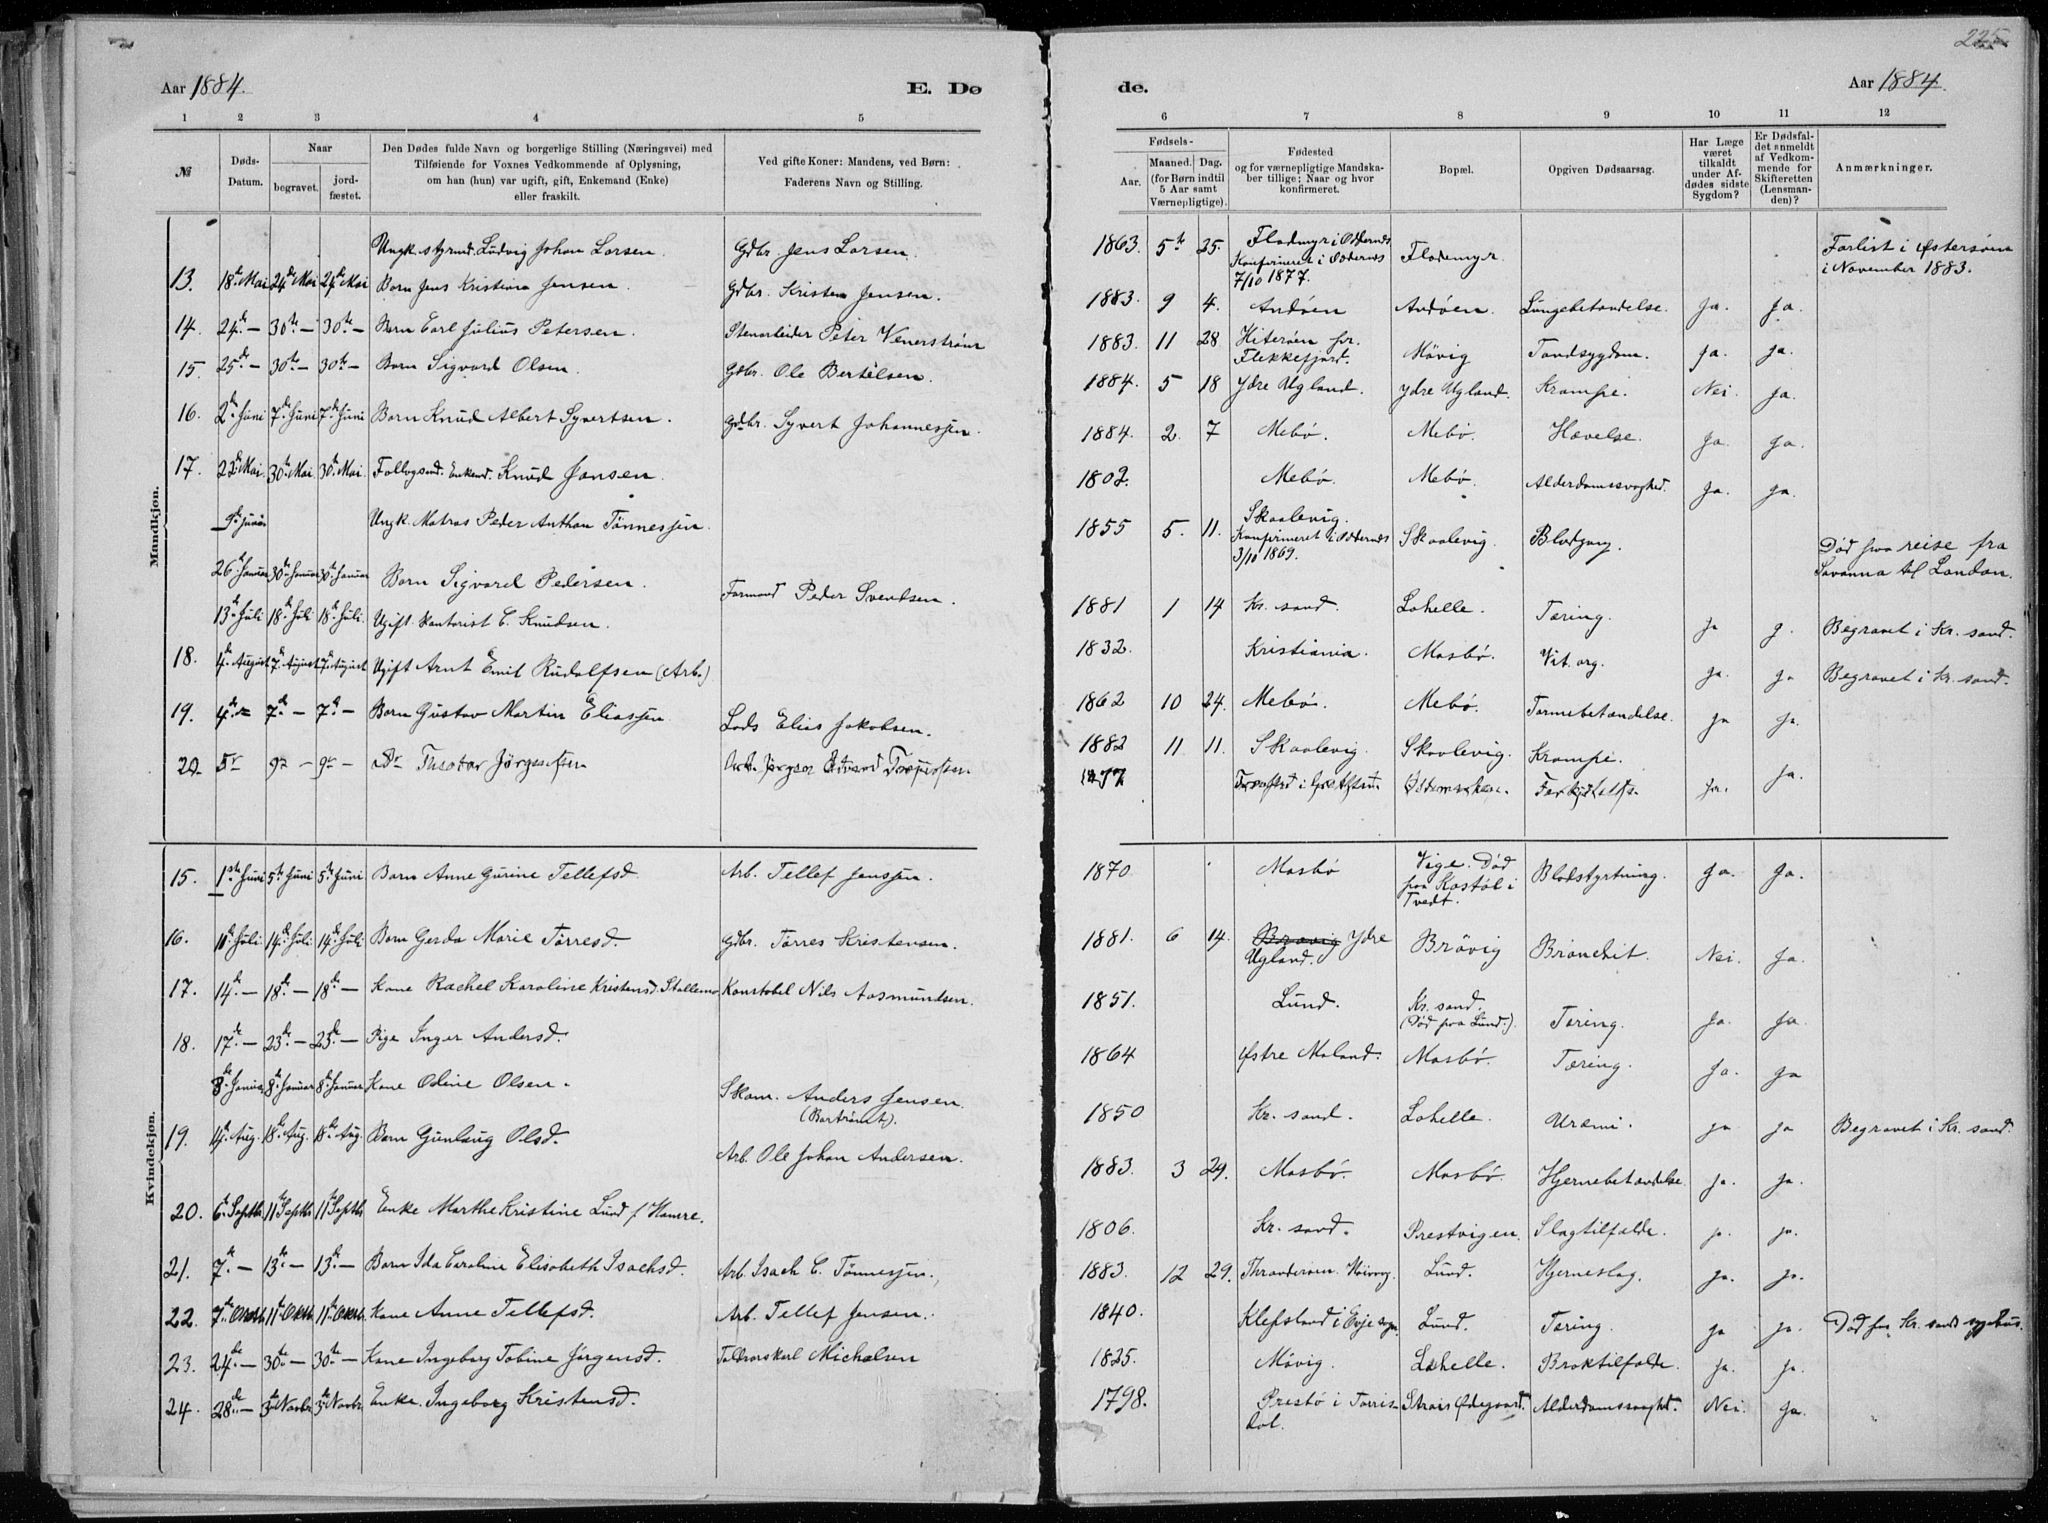 225
Aar 1884.
E. Dø
de.
Aar 1884.
1 2 3 4 5
6 7 8 9 10 11 12
№
Døds-Datum.
Naar
begravet.
jord-fæstet.
Den Dødes fulde Navn og borgerlige Stilling (Næringsvei) med
Tilføiende for Voxnes Vedkommende af Oplysning,
om han (hun) var ugift, gift, Enkemand (Enke)
eller fraskilt.
Ved gifte Koner: Mandens, ved Børn:
Faderens Navn og Stilling.
Fødsels-
Aar.
Maaned. Dag.
(for Børn indtil
5 Aar samt
Værnepligtige).
Fødested
og for værnepligtige Mandska-
ber tillige: Naar og hvor
konfirmeret.
Bopæl.
Opgiven Dødsaarsag.
Har Læge
været
tilkaldt
under Af-
dødes sidste
Sygdom?
Er Dødsfal-
det anmeldt
af Vedkom-
mende for
Skifteretten
(Lensman-
den)?
Anmærkninger.
Mandkjøn.
Ungk. styrmd. Ludvig Johan Larsen. Gdbr. Jens Larsen. 1863. 5te 25. Flodemyr i Oddernes Konfirmeret i Oddernes 7/10 1877. Flodemyr. Forlist i Østersøen i November 1883.
13. 18de Mai 24de Mai 24de Mai Barn Jens Kristian Jensen. Gdbr. Kristen Jensen. 1883. 9 4. Andøen Andøen. Lungebetændelse. Ja. Ja.
14. 24de — 30te — 30te — Barn Carl Julius Petersen. Stenarbeider Peter Venerstrøm 1883. 11 28 Hiterøen pr. Flekkefjord. Møvig Tandsygdom. Ja. Ja.
15 25de — 30te — 30te — Barn Sigvard Olsen. Gdbr. Ole Bertelsen. 1884. 5 18 Ydre Ugland. Ydre Ugland. Krampe. Nei. Ja.
16. 2den Juni 7de Juni 7de Juni Barn Knud Albert Syvertsen. Gdbr. Syvert Johannessen. 1884. 2. 7 Mebø. Mebø. Hævelse. Ja. Ja.
17. 22de Mai. 30te Mai 30te Mai. Follogsmd. Enkemd. Knud Jansen. 1802. Mebø. Mebø. Alderdomssvaghed. Ja. Ja.
Ungk. Matros Peder Anthon Tønnessen. 1855 5. 11. Skaalevig. Konfirmeret i Oddernes 3/10 1869. Skaalevig. Blodgang. Død paa reise fra Savanna til London.
26de Januar 30te Januar 30te Januar Barn Sigvard Pedersen. Formand Peder Svendsen. 1881 1 14 Kr. sand. Lahelle. Tæring. Ja J. Begravet i Kr. sand.
13de Juli 18de Juli 18de Juli. Ugift Kontorist C. Knudsen. 1832. Kristiania. Mosbø. Vit. org. Ja. Ja Begravet i Kr. sand.
18. 4de August 7de August 7de August Ugift Arnt Emil Rudolfsen (Arb.) 1862 10 24. Mebø. Mebø. Tarmebetændelse. Ja Ja.
19. 4de — 7de — 7de — Barn Gustav Martin Eliassen. Lods Elias Jakobsen. 1882 11 11. Skaalevig. Skaalevig. Krampe. Ja.
20. 5 9 — 9 — 1877 Ja.
Kvindekjøn.
15. 1ste Juni 5te Juni 5te Juni Barn Anne Gurine Tellefsd. Arb. Tellef Jenssen. 1870. Mosbø Vige. Død paa Kostøl i Tvedt. Blodstyrtning. Ja. Ja.
16. 10de Juli. 14de Juli 14de Juli Barn Gerda Marie Tørresd. Gdbr. Tørres Kristensen. 1881. 6 14. Brøvig Ydre Ugland. Brøvig Bronchit. Nei. Ja.
17. 14de — 18de — 18de — Kone Rachel Karoline Kristensd. Stallemo Konstabel Nils Aasmundsen. 1851. Lund. Kr. sand. (Død paa Lund.) Tæring. Ja. Ja.
18. 17de — 23de — 23de — Pige Inger Andersd. 1864 Østre Moland. Mosbø. Tæring. Ja. Ja
8de Januar 8de Januar 8de Januar. Kone Odine Olsen. Skom. Anders Jensen. 1850 Kr. sand. Lahelle. Uræmi. Ja Ja Begravet i Kr. sand.
19. 14de Aug. 18de Aug. 18de Aug. Barn Gunlaug Olsd. Arb. Ole Johan Andersen. 1883. 3 29. Mosbø. Mosbø. Hjernebetændelse. Ja. Ja.
20. 6te Septbr. 11te Septbr. 11te Septbr. Enke Marthe Kristine Lund f. Hamre. 1806. Kr. sand. Prestvigen. Slagtilfælde. J. Ja.
21. 7de — 13de — 13de — Barn Ida Caroline Elisabeth Isachsd. Arb. Isach C. Tønnessen. 1883. 12 29. Lund. Hjerneslag. Ja. Ja.
22. 7de Oktbr. 11te Oktbr. 11te Oktbr. Kone Anne Tellefsd. Arb. Tellef Jensen. 1840. Klefsland i Evje sogn. Lund. Tæring. Ja Ja. Død paa Kr. sands sygehus.
23. 24de — 30te — 30te — Kone Ingeborg Tobine Jørgensd. Michalsen 1825. Møvig. Lahelle. Broktilfælde. Ja. Ja.
24. 28de — 3de Novbr. 3de Novbr. Enke. Ingeborg Kristensd. 1798. Prestø i Torrisdal. Strais Ødegaard. Alderdomssvaghed. Nei. Ja.